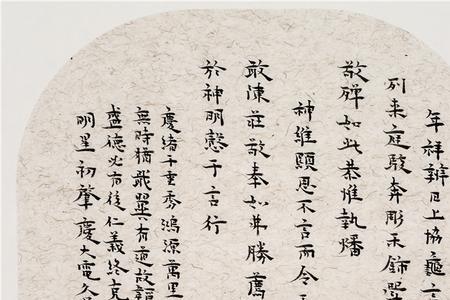 年祥辨日上協龜
列来庭駿奔彫禾飾
敬殫如此恭惟執燔
神維顯思不言而令
敢涑莊敬奉如弗勝薦
於神明慤于言行
慶緒千重秀鴻源萬里
無時猶戢翼有道故韜
盛德必有後仁義終克
明星初肇慶大電久呈